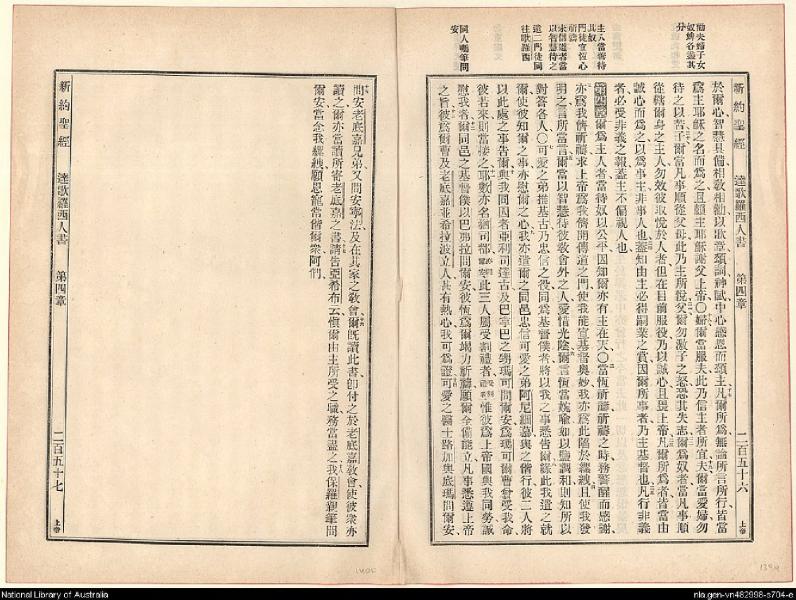 新約聖經 達歌羅西人書 第四章 二百五十六 上帝
勸夫婦子女
奴婢各盡其
分
主人當善待
其奴
門徒宜恆心
祈禱
未信道者當
以智慧待之
遣二門徒同
往歌羅西
同人囑筆問
安
於爾心智慧具備相敎相勸以歌章頌詞神賦中心感恩而頌主凡爾所爲無論所言所行皆當
爲主耶穌之名而爲之且賴主耶穌謝父上帝〇婦爾當服夫此乃信主者所宜夫爾當愛婦勿
待之以苦子爾當凡事順從父母此乃主所悅父爾勿激子之怒恐其失志爾爲奴者當凡事順
從轄爾身之主人勿效彼取悅於人者但在目前服役乃以誠心且畏上帝凡爾所爲者皆當由
誠心而爲之以爲事主非事人也蓋知由主必得嗣業之賞因爾所事者乃主基督也凡行非義
者必受非義之報蓋主不偏視人也
第四章爾爲主人者當待奴以公平因知爾亦有主在天〇當恆祈禱祈禱之時務警醒而感謝
亦爲我儕祈禱求上帝爲我儕開傳道之門使我能宣基督奧妙我亦爲此陷於縲絏且使我發
明之言所當言爾當以智慧待彼敎會外之人愛惜光陰爾言恆當婉喻如以鹽調和則知所以
對答各人〇可愛之弟推基古乃忠信之役同爲基督僕者將以我之事悉告爾緣此我遣之就
爾使彼知爾之事亦慰爾之心我亦遣爾之同邑忠信可愛之弟阿尼細慕與之偕行彼二人將
以此處之事告爾與我同囚者亞利司達古及巴拿巴之甥瑪可問爾安爲瑪可爾曹曾受我命
彼若來則當接之耶數亦名猶司都問爾安此三人屬受割禮者惟彼爲上帝國與我同勞誠
慰我者爾同邑之基督僕以巴弗拉問爾安彼恆爲爾竭力祈禱願爾全備能立凡事悉遵上帝
之旨彼爲爾曹及老底嘉並希拉波立人甚有熱心我可爲證可愛之醫士路加與底瑪問爾安
問安老底嘉兄弟又問安寧法及在其家之敎會爾旣讀此書卽付之於老底嘉敎會使彼衆亦
讀之爾亦當讀所寄老底嘉之書請告亞希布云愼爾由主所受之職務當盡之我保羅親筆問
爾安當念我縲絏願恩寵常偕爾衆阿們
新約聖經 達歌羅西人書 第四章 二百五十七 上帝
National Library of Australia
nla.gen-vn482998-s704-e